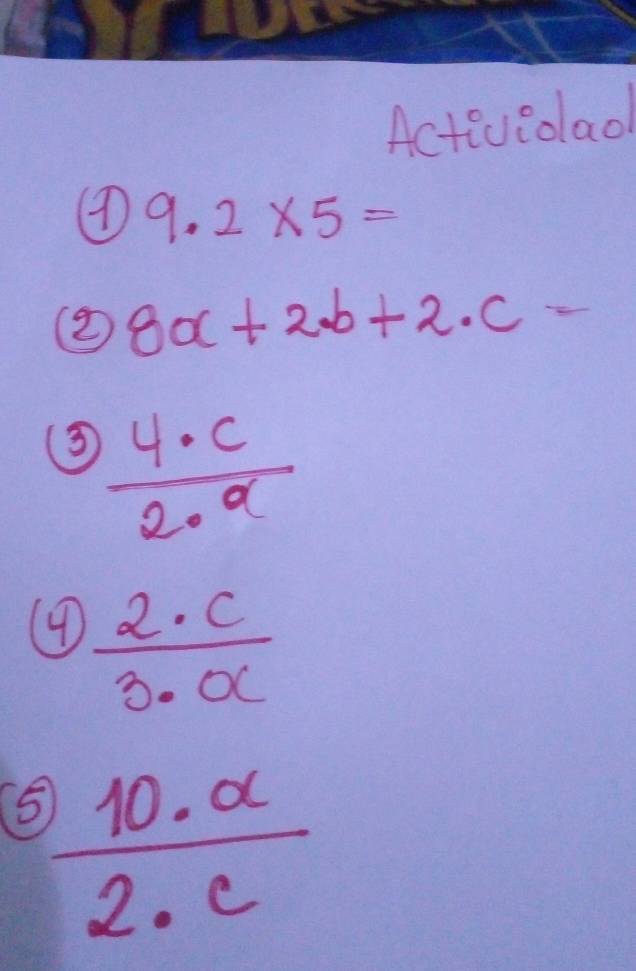 Actividad
① 9.2 x 5 =
② 8a + 2.b + 2.c =
③ 4.c
2.a
④ 2.c
3.a
⑤ 10.a
2.c